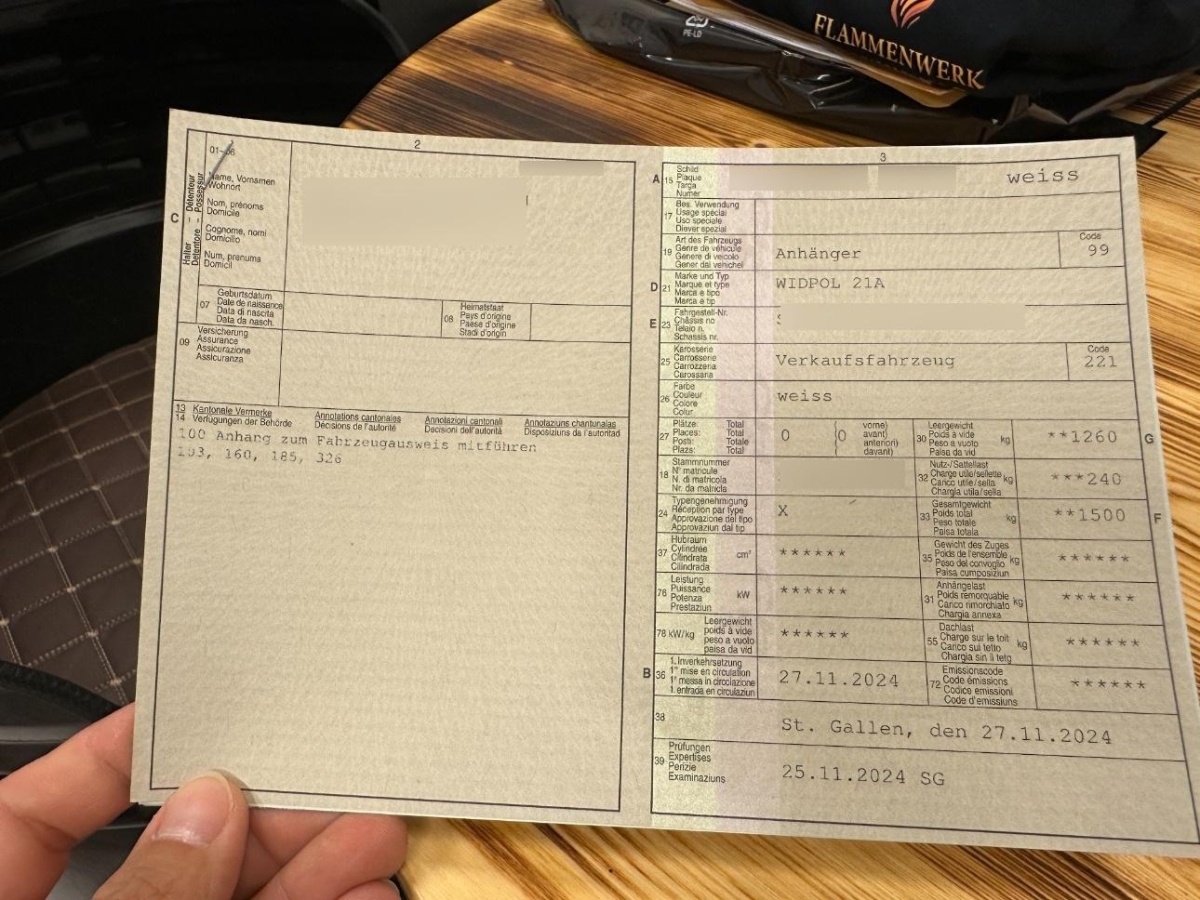 PE-LD
FLAMMENWERK
2
01-
C
Halter Détenteur
Detentore Possessur
Name, Vornamen
Wohnort
Nom, prénoms
Domicile
Cognome, nomi
Domicilio
Num, prenums
Domicil
07
Geburtsdatum
Date de naissance
Data di nascita
Data da nasch.
08
Heimatstaat
Pays d'origine
Paese d'origine
Stadi d'origin
09
Versicherung
Assurance
Assicurazione
Assicuranza
13 Kantonale Vermerke Annotations cantonales Annotazioni cantonali Annotaziuns chantunalas
14 Verfügungen der Behörde Décisions de l'autorité Decisioni dell'autorità Disposiziuns da l'autoritad
100 Anhang zum Fahrzeugausweis mitführen
103, 160, 185, 326
3
A 15
Schild
Plaque
Targa
Numer
weiss
17
Bes. Verwendung
Usage spécial
Uso speciale
Diever spezial
19
Art des Fahrzeugs
Genre de véhicule
Genere di veicolo
Gener dal vehichel
Anhänger
Code
99
D 21
Marke und Typ
Marque et type
Marca e tipo
Marca e tip
WIDPOL 21A
E 23
Fahrgestell-Nr.
Châssis no
Telaio n.
Schassis nr.
25
Karosserie
Carrosserie
Carrozzeria
Carossaria
Verkaufsfahrzeug
Code
221
26
Farbe
Couleur
Colore
Colur
weiss
27
Plätze: Total
Places: Total
Posti: Totale
Plazs: Total
0
(0
vorne)
avant)
anteriori)
davant)
30
Leergewicht
Poids à vide
Peso a vuoto
Paisa da vid
kg
**1260
G
18
Stammnummer
N° matricule
N. di matricola
Nr. da matricla
32
Nutz-/Sattellast
Charge utile/sellette
Carico utile/sella
Chargia utila/sella
kg
***240
24
Typengenehmigung
Réception par type
Approvazione del tipo
Approvaziun dal tip
X
33
Gesamtgewicht
Poids total
Peso totale
Paisa totala
kg
**1500
F
37
Hubraum
Cylindrée
Cilindrata
Cilindrada
cm³
******
35
Gewicht des Zuges
Poids de l'ensemble
Peso del convoglio
Paisa cumposiziun
kg
******
76
Leistung
Puissance
Potenza
Prestaziun
kW
******
31
Anhängelast
Poids remorquable
Carico rimorchiato
Chargia annexa
kg
******
78 kW/kg
Leergewicht
poids à vide
peso a vuoto
paisa da vid
******
55
Dachlast
Charge sur le toit
Carico sul tetto
Chargia sin il tetg
kg
******
B 36
1. Inverkehrsetzung
1re mise en circulation
1a messa in circolazione
1. entrada en circulaziun
27.11.2024
72
Emissionscode
Code émissions
Codice emissioni
Code d'emissiuns
******
38
St. Gallen, den 27.11.2024
39
Prüfungen
Expertises
Perizie
Examinaziuns
25.11.2024 SG